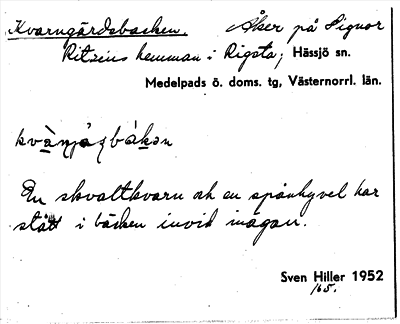 Kvarngärdsbacken. Åker på Signor
Ritzéns hemman i Rigsta, Hässjö sn.
Medelpads ö. doms. tg, Västernorrl. län.
En skvaltkvarn och en spånhyvel har
stått i bäcken invid vägen.
Sven Hiller 1952
165.